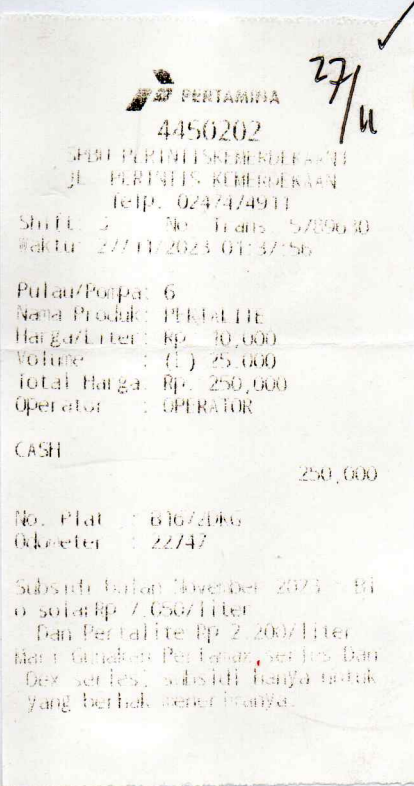 27/11
PERTAMINA
4450202
JL. PERINTIS KEMERDEKAAN
Telp. 0247474911
Shift: 3 No. Trans: 5789630
Waktu: 27/11/2023 01:37:56
Pulau/Pompa: 6
Nama Produk: PERTALITE
Harga/Liter: Rp. 10,000
Volume : (L) 25.000
Total Harga: Rp. 250,000
Operator : OPERATOR
CASH
250,000
No. Plat :
Odometer : 22747
Subsidi bulan November 2023 : Bi
o solar Rp 7.650/liter
Dan Pertalite Rp 2.200/liter
Mari Gunakan Pertamax series Dan
Dex series, subsidi hanya untuk
yang berhak menerimanya.